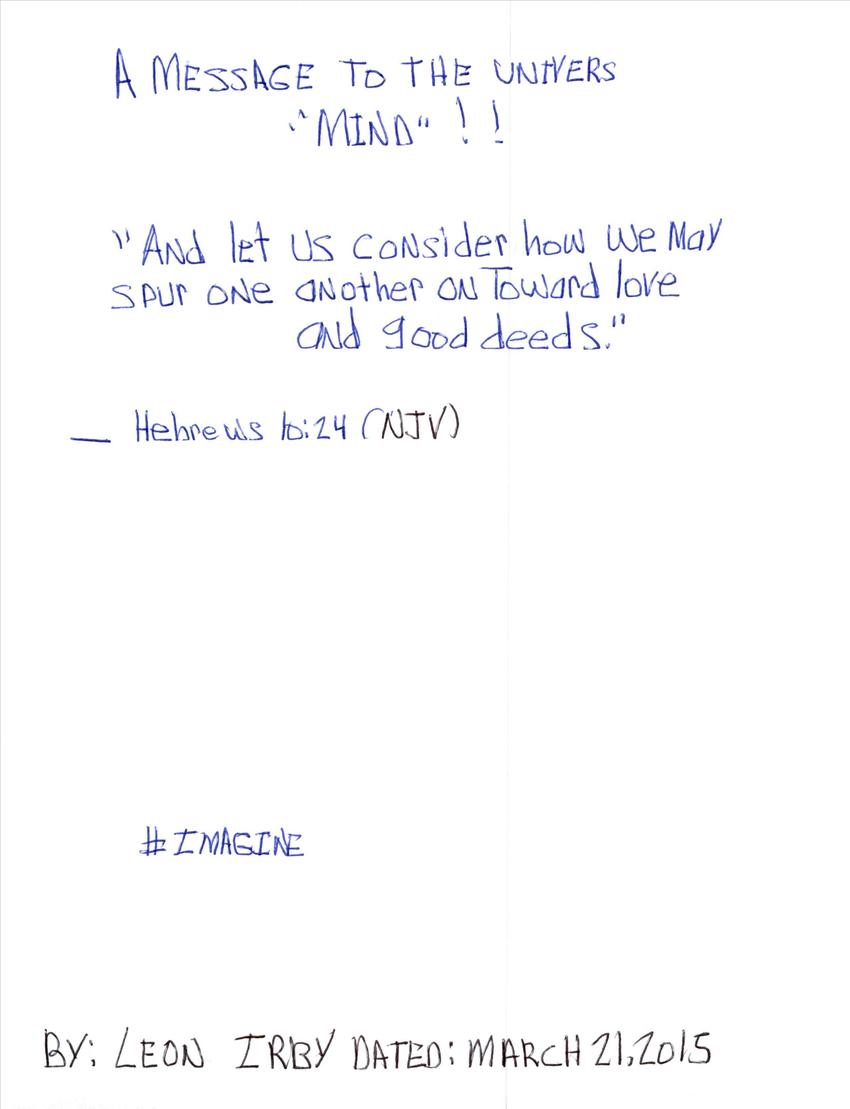 A MESSAGE TO THE UNIVERS
"MIND" !!
"And let us consider how we may
spur one another on Toward love
and good deeds."
— Hebrews 10:24 (NIV)
#IMAGINE
BY: LEON IRBY DATED: MARCH 21, 2015